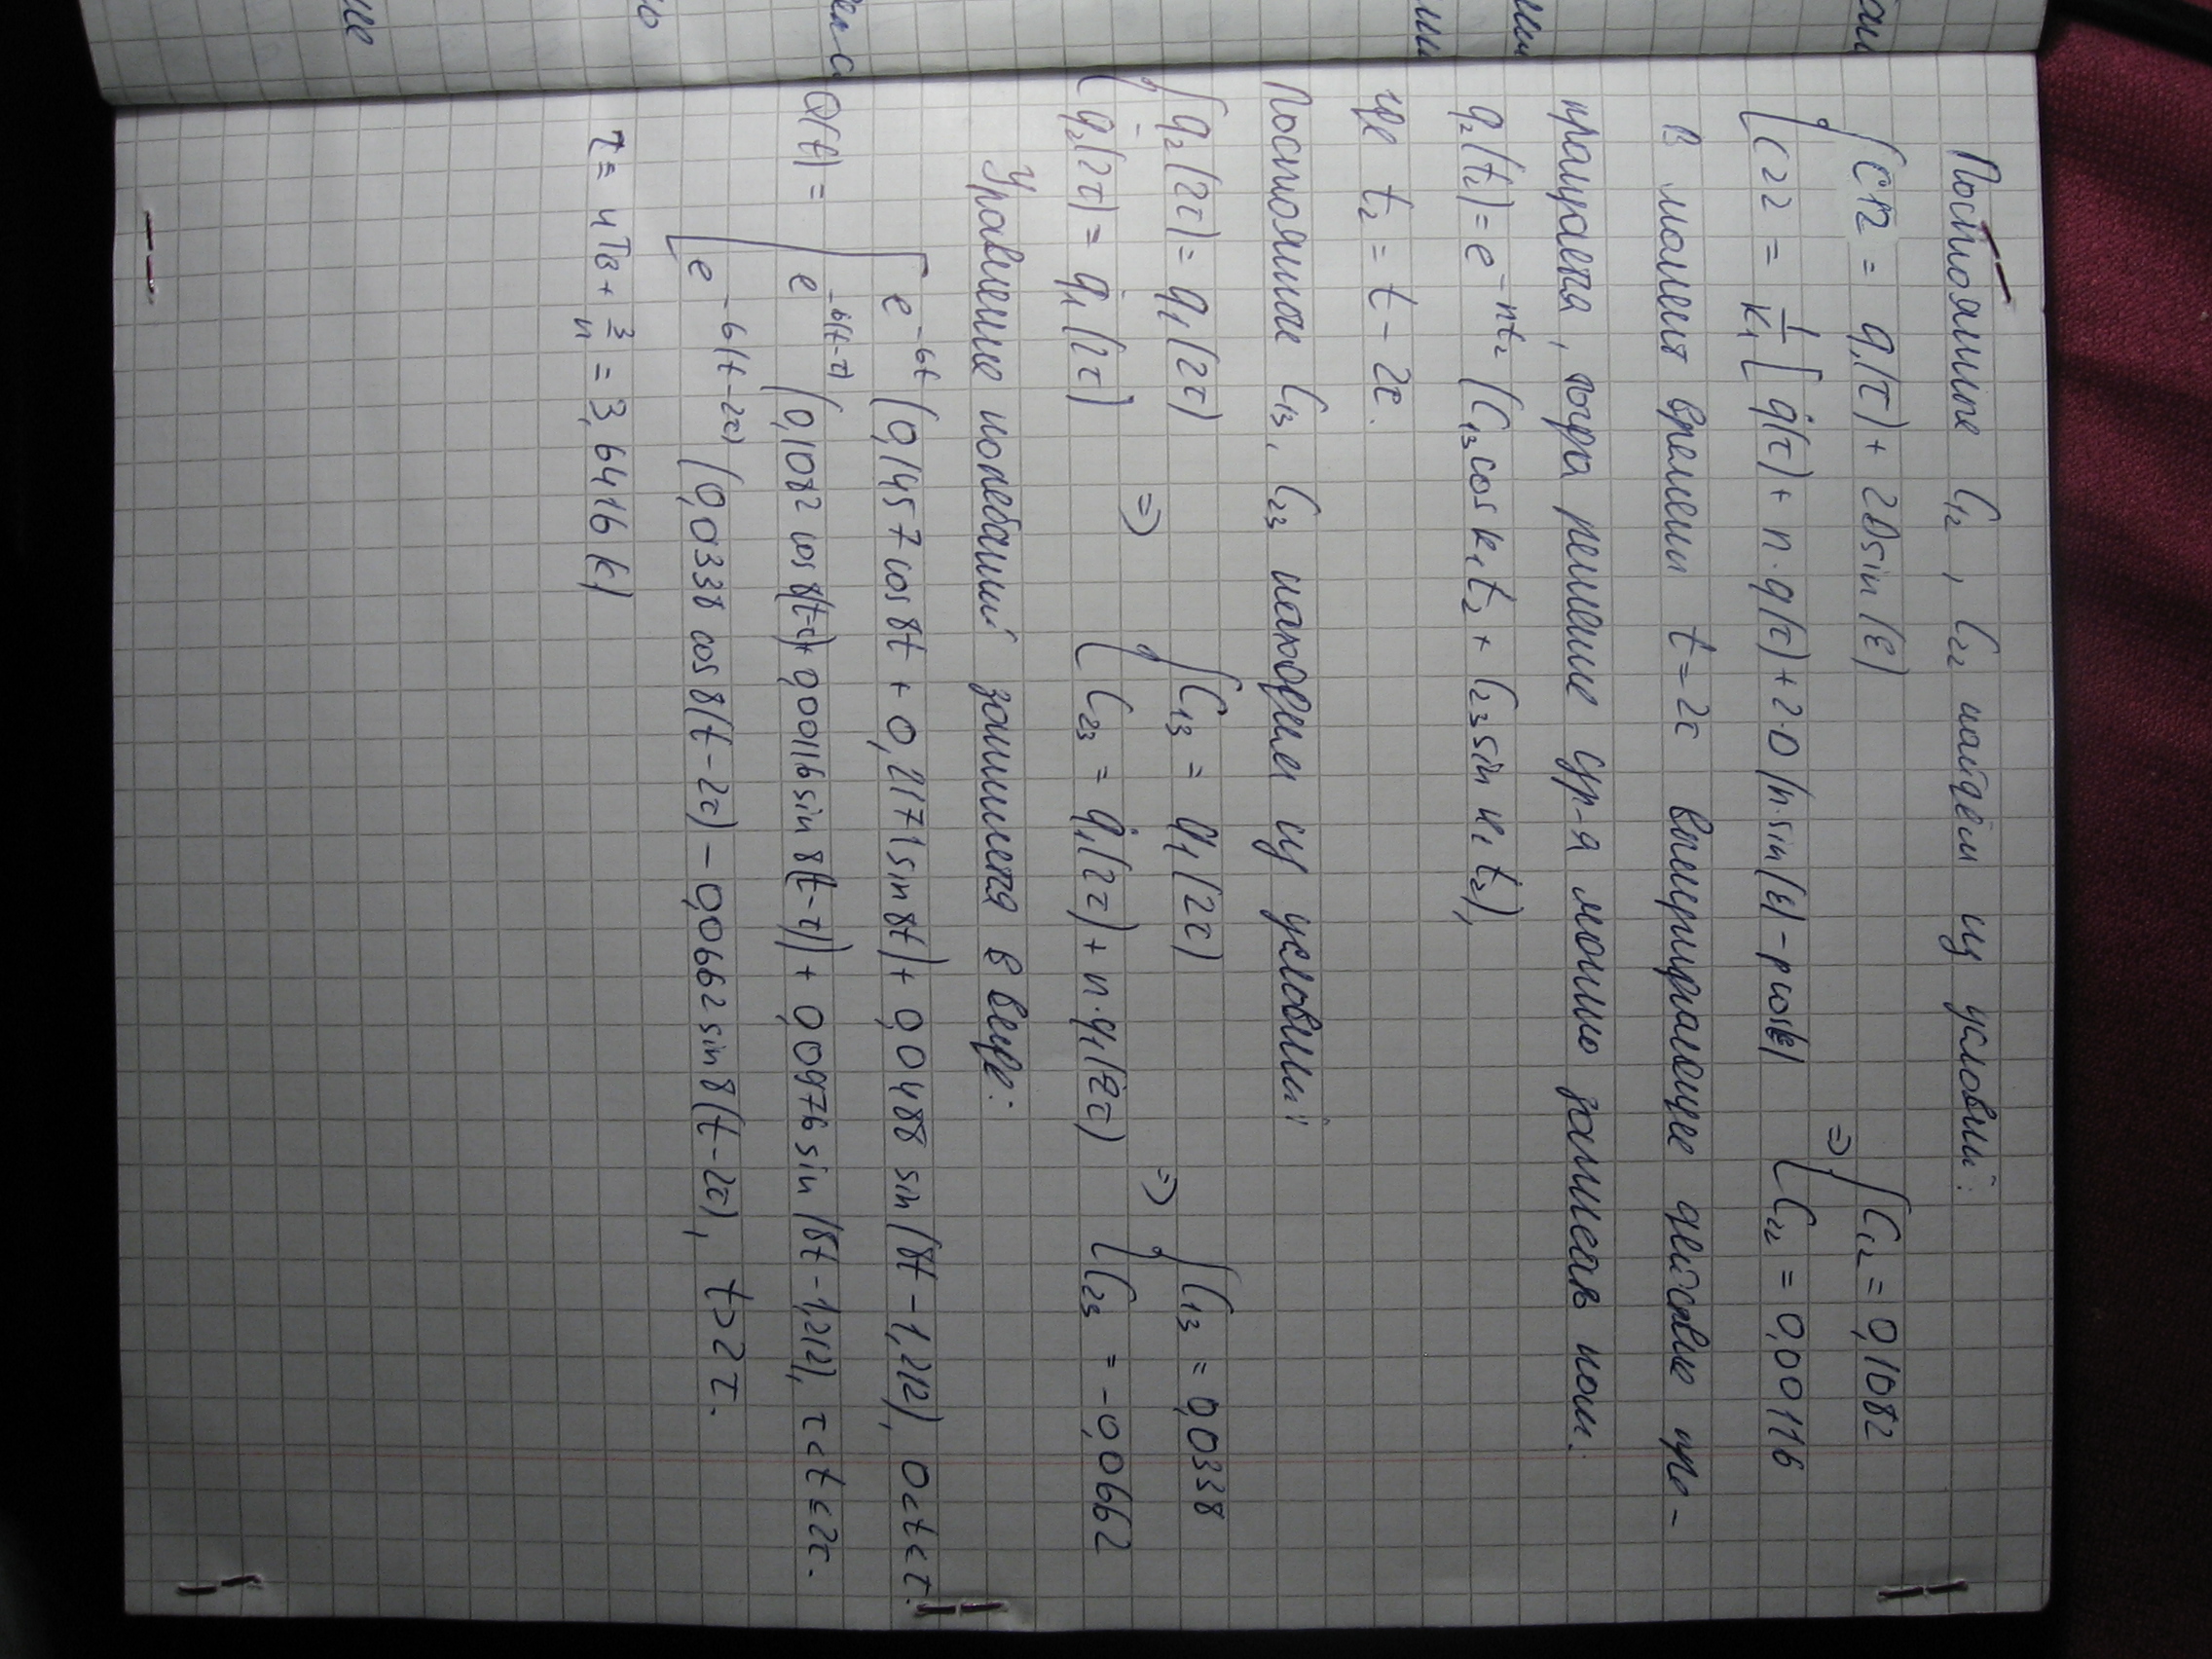 Постоянные C₁₂, C₂₂ найдём из условий:
{ C12 = q₁(τ) + 2D sin(ε)
{ C22 = 1/k₁ [ q̇(τ) + n·q(τ) + 2·D(n·sin(ε) - p cosε) ⇒ { C₁₂ = 0,1082
{ C₂₂ = 0,00116
В момент времени t = 2τ вынуждающее действие пре-
кращается, тогда решение ур-я можно записать как:
q₂(t₂) = e^(-nt₂) (C₁₃ cos k₁t₂ + C₂₃ sin k₁t₂),
где t₂ = t - 2τ.
Постоянные C₁₃, C₂₃ находим из условий
{ q₂(2τ) = q₁(2τ) ⇒ { C₁₃ = q₁(2τ) ⇒ { C₁₃ = 0,0338
{ q̇₂(2τ) = q̇₁(2τ) { C₂₃ = q̇₁(2τ) + n·q₁(2τ) { C₂₃ = -0,0662
Уравнение колебаний запишется в виде:
Q(t) = { e^(-6t) (0,1457 cos 8t + 0,2171 sin 8t) + 0,0488 sin(8t - 1,212), 0<t<τ.
e^(-6(t-τ)) (0,1082 cos 8(t-τ) + 0,00116 sin 8(t-τ)) + 0,0976 sin(8t - 1,212), τ<t≤2τ.
e^(-6(t-2τ)) (0,0338 cos 8(t-2τ) - 0,0662 sin 8(t-2τ), t>2τ.
τ = 4Tв + 3/n = 3,6416 (c)